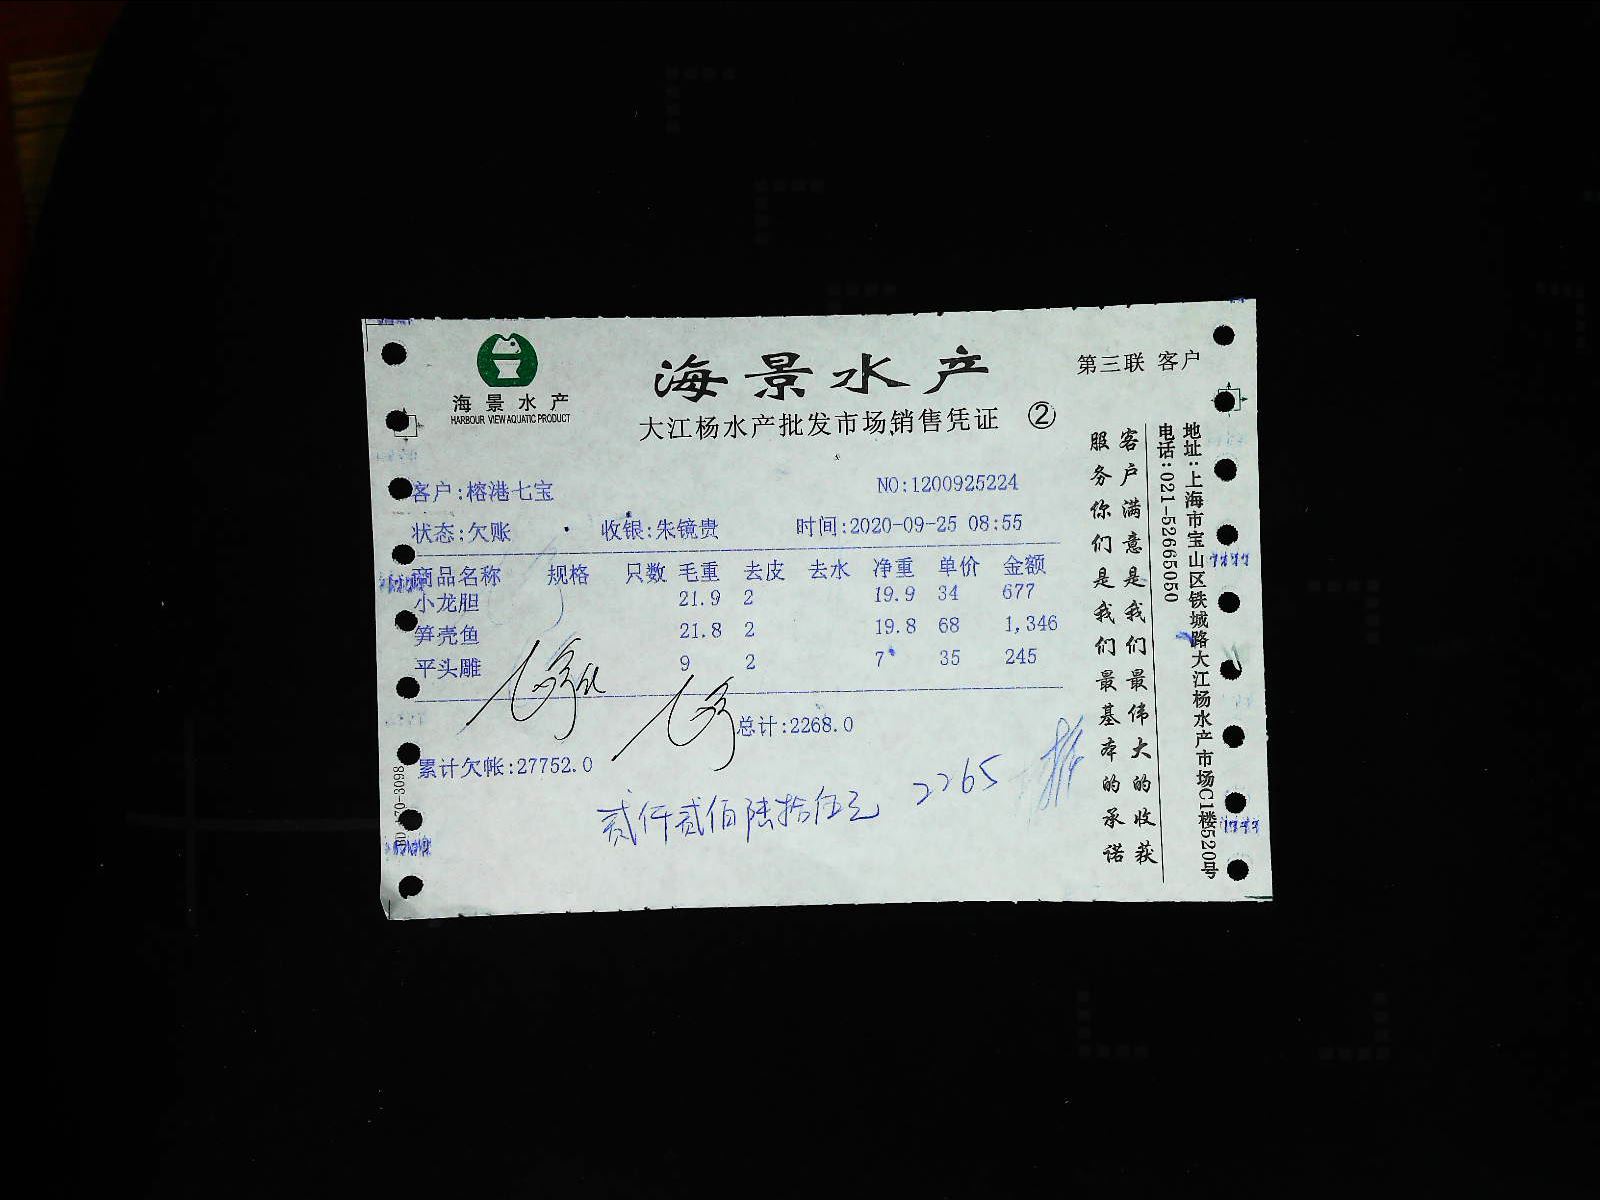 海景水产
HARBOUR VIEW AQUATIC PRODUCT
海景水产
第三联 客户
大江杨水产批发市场销售凭证 ②
客户:榕港七宝
NO:1200925224
状态:欠账 收银:朱镜贵 时间:2020-09-25 08:55
商品名称 规格 只数 毛重 去皮 去水 净重 单价 金额
小龙胆 21.9 2 19.9 34 677
笋壳鱼 21.8 2 19.8 68 1,346
平头雕 9 2 7 35 245
总计:2268.0
累计欠帐:27752.0
贰仟贰佰陆拾伍元 2265
客户满意是我们最伟大的收获
服务你们是我们最基本的承诺
地址:上海市宝山区铁城路大江杨水产市场C1楼5520号
电话:021-52665050